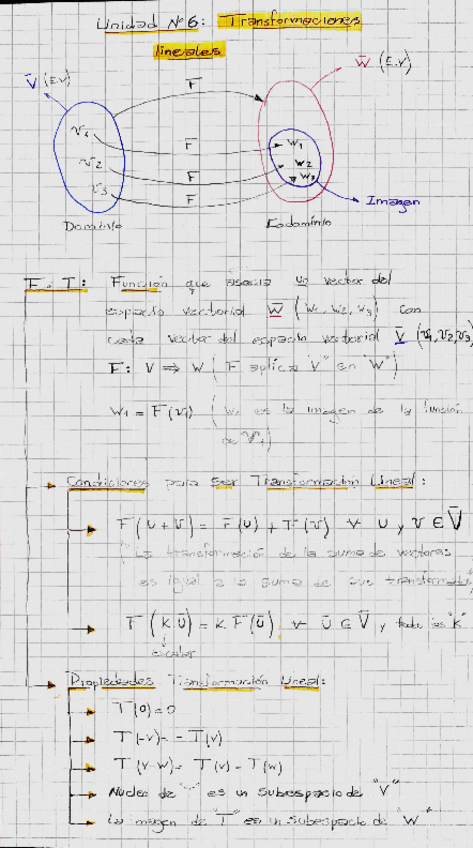 Unidad Nº6: Transformaciones
lineales
V̄ (E.V)
W̄ (E.V)
F
v₁ F w₁
v₂ F w₂
v₃ F w₃
Imagen
Dominio Codominio
F. T: Función que asocia un vector del
espacio vectorial W̄ (w₁, w₂, w₃) con
cada vector del espacio vectorial V̄ (v₁, v₂, v₃)
F: V ⇒ W (F aplica "V" en "W")
W₁ = F(v₁) (w₁ es la imagen de la función
de v₁)
Condiciones para ser Transformación Lineal:
F(u+v) = F(u) + F(v) ∀ u y v ∈ V̄
"La transformación de la suma de vectores
es igual a la suma de sus transformadas"
F(k.ū) = k.F(ū), ∀ ū ∈ V̄ y todo los "k"
↓
escalar
Propiedades Transformación Lineal:
T(0)=0
T(-v) = - T(v)
T(v-w) = T(v) - T(w)
Nucleo de es un subespacio de "V"
La imagen de "T" es un subespacio de "W"